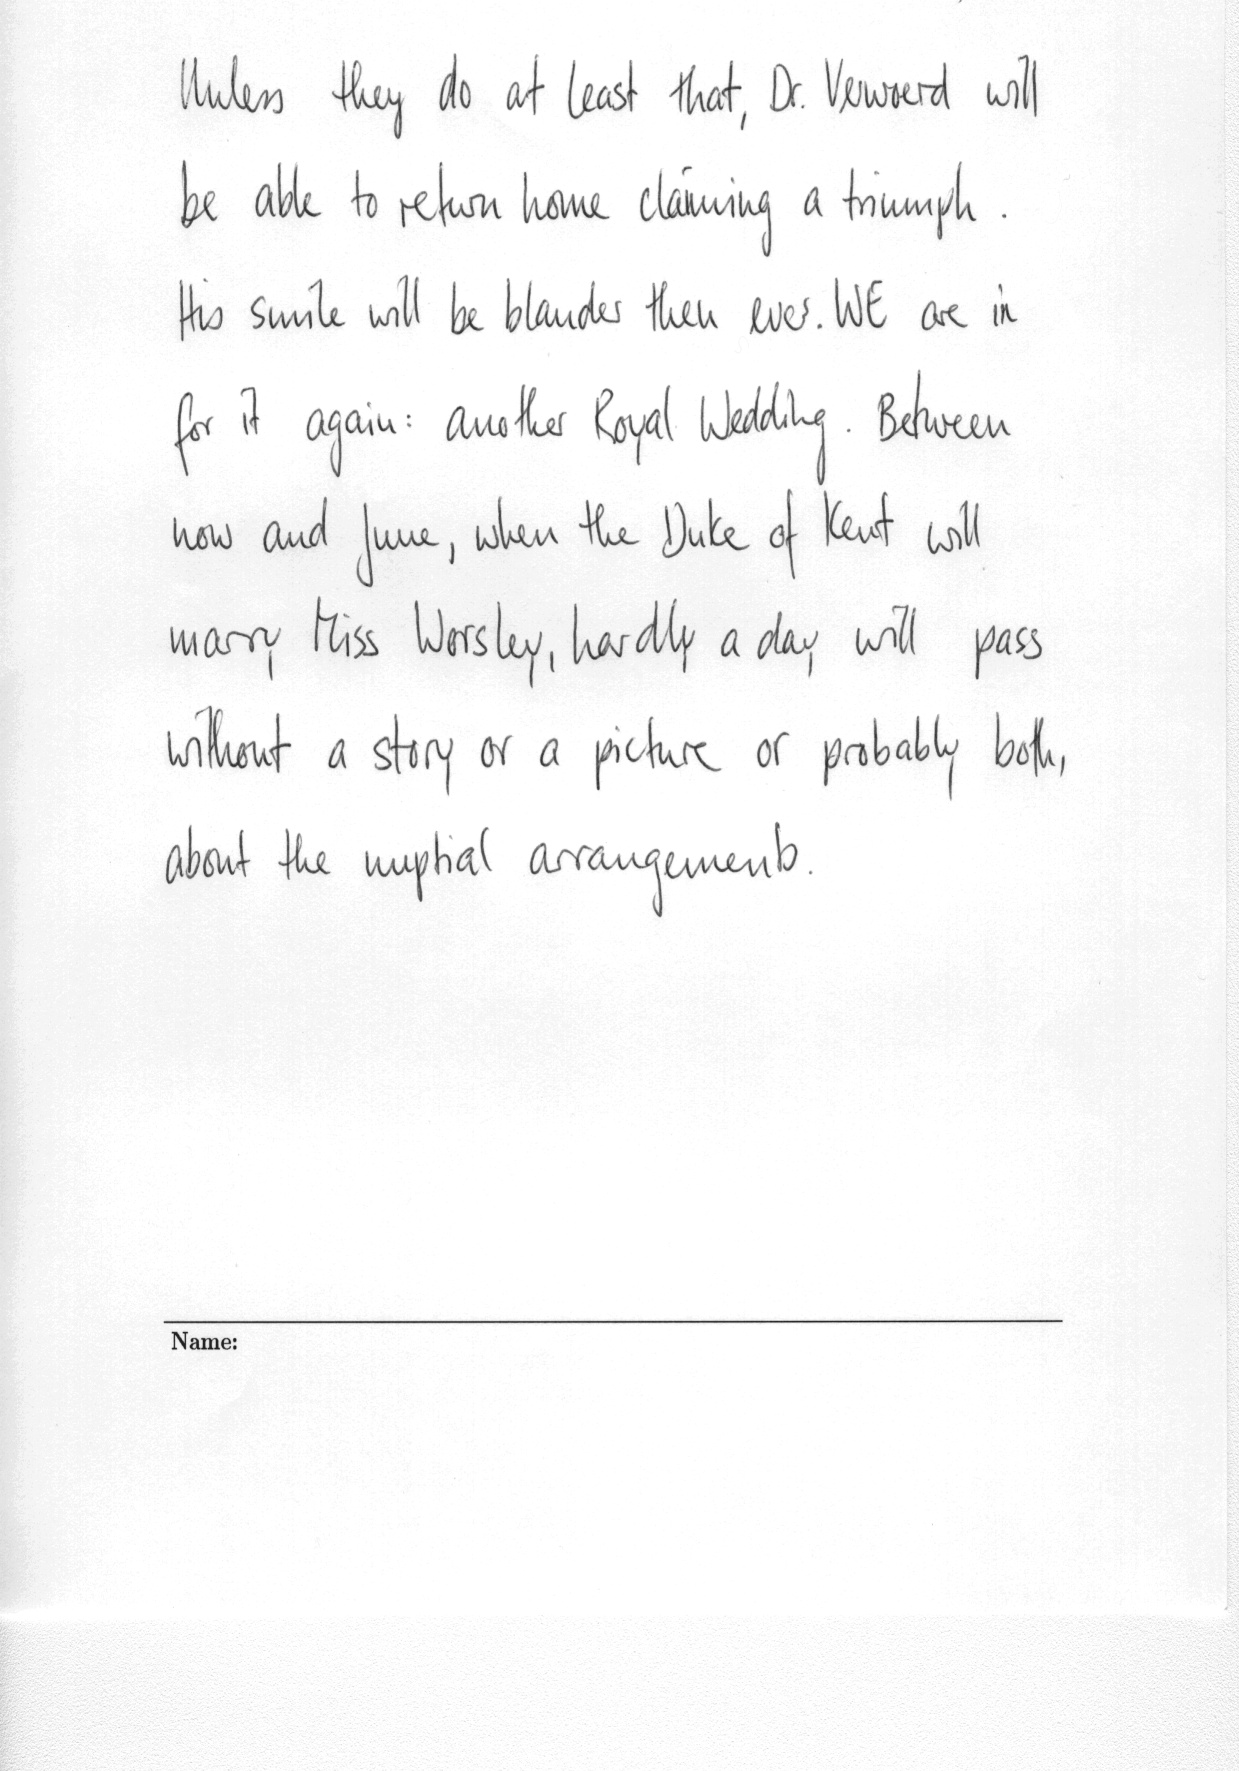 Unless they do at least that, Dr. Verwoerd will
be able to return home claiming a triumph.
His smile will be blander then ever. WE are in
for it again: another Royal Wedding. Between
now and June, when the Duke of Kent will
marry Miss Worsley, hardly a day will pass
without a story or a picture or probably both,
about the nuptial arrangements.
Name: